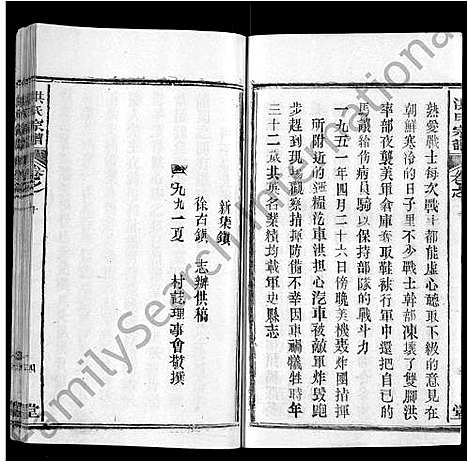 熱愛戰士每次戰斗都能虛心聽取下級的意見在
朝鮮寒冷的日子里不少戰士幹部凍壞了雙脚洪
率部夜襲美軍倉庫奪取鞋襪行軍中還把自己的
馬讓給伤病員騎以保持部隊的戰斗力
一九五一年四月二十六日傍晚美機轰炸團指揮
所附近的運糧汔車洪担心汔車被敵軍炸毁跑
步趕到現場觀察指揮防備不幸因車禍犧牲時年
三十二歲其英名業績均載軍史縣志
新集鎮
徐古鎮 志辦供稿
一九九一夏 村誌理事會敬撰
洪氏宗譜
堂
FamilySearch International